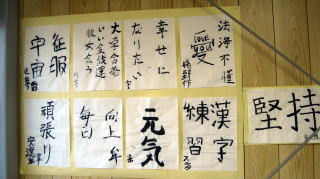 法海不懂
love you
愛
幸せに
なりたい
大学合格
いい金銭運
彼女会う
征服
宇宙
漢字
練習
元気
向上
毎日
頑張り
安運堂
堅持